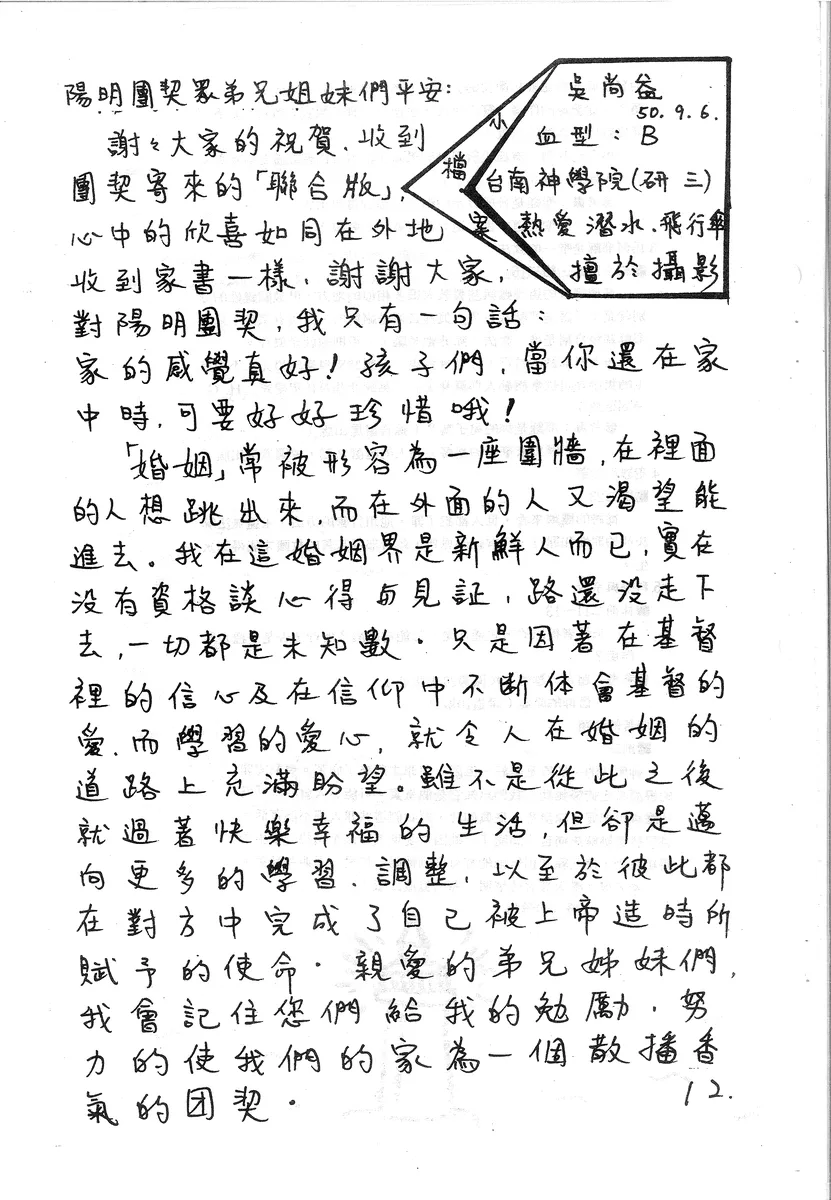 陽明團契眾弟兄姐妹們平安:
謝々大家的祝賀、收到
團契寄來的「聯合版」,
心中的欣喜如同在外地
收到家書一樣、謝謝大家,
對陽明團契,我只有一句話:
家的感覺真好!孩子們,當你還在家
中時,可要好好珍惜哦!
「婚姻」常被形容為一座圍牆,在裡面
的人想跳出來,而在外面的人又渴望能
進去。我在這婚姻界是新鮮人而已,實在
没有資格談心得与見証,路還没走下
去,一切都是未知數.只是因著在基督
裡的信心及在信仰中不斷体會基督的
愛、而學習的愛心,就令人在婚姻的
道路上充滿盼望。雖不是從此之後
就過著快樂幸福的生活,但卻是邁
向更多的學習、調整,以至於彼此都
在對方中完成了自己被上帝造時所
賦予的使命.親愛的弟兄姊妹們,
我會記住您們給我的勉勵,努
力的使我們的家為一個散播香
氣的团契.
小
檔
案
吳尚益
50.9.6.
血型:B
台南神學院(研三)
熱愛潛水、飛行傘
擅於攝影
12.